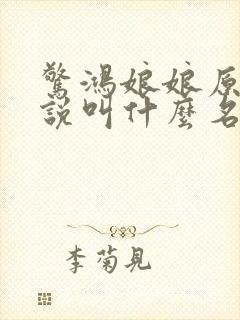 驚鴻娘娘原
說叫什麼名
李菊見